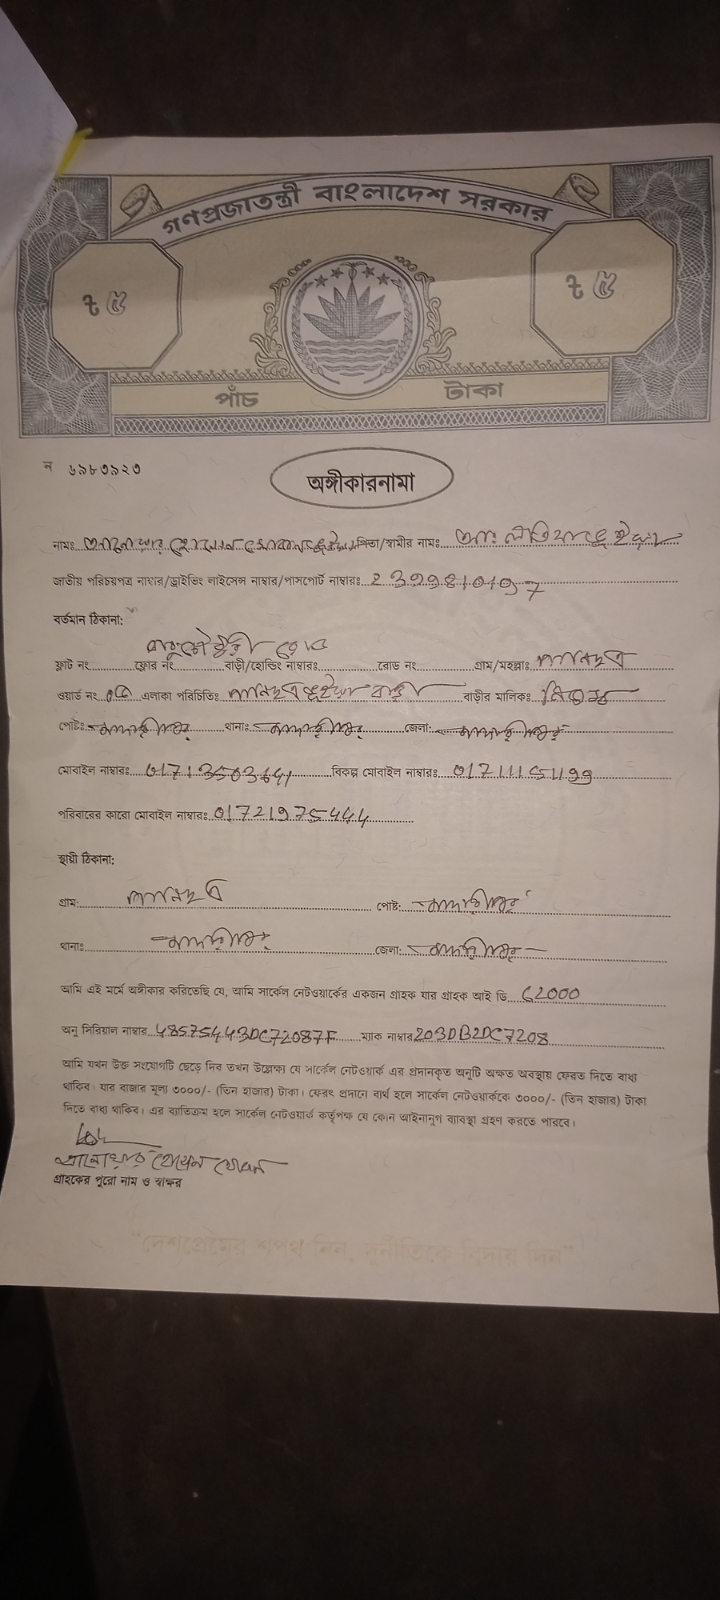 গণপ্রজাতন্ত্রী বাংলাদেশ সরকার
৳ ৫ ৳ ৫
পাঁচ টাকা
ন ৬৯৮৩৯২৩
অঙ্গীকারনামা
নামঃ আনোয়ার হোসেন পিতা/স্বামীর নামঃ
জাতীয় পরিচয়পত্র নাম্বার/ড্রাইভিং লাইসেন্স নাম্বার/পাসপোর্ট নাম্বারঃ
বর্তমান ঠিকানা:
ফ্লাট নং ফ্লোর নং বাড়ী/হোল্ডিং নাম্বারঃ রোড নং গ্রাম/মহল্লাঃ
ওয়ার্ড নং এলাকা পরিচিতিঃ বাড়ী বাড়ীর মালিকঃ নিজস্ব
পোষ্টঃ মাদারীপুর থানাঃ মাদারীপুর জেলা: মাদারীপুর
মোবাইল নাম্বারঃ 01713503641 বিকল্প মোবাইল নাম্বারঃ 01711151199
পরিবারের কারো মোবাইল নাম্বারঃ 01721975444
স্থায়ী ঠিকানা:
গ্রাম: পোষ্ট: মাদারীপুর
থানাঃ মাদারীপুর জেলা: মাদারীপুর
আমি এই মর্মে অঙ্গীকার করিতেছি যে, আমি সার্কেল নেটওয়ার্কের একজন গ্রাহক যার গ্রাহক আই ডি C2000
অনু সিরিয়াল নাম্বার 48575443DC72087F ম্যাক নাম্বার 203DB2DC7208
আমি যখন উক্ত সংযোগটি ছেড়ে দিব তখন উল্লেখ্য যে সার্কেল নেটওয়ার্ক এর প্রদানকৃত অনুটি অক্ষত অবস্থায় ফেরত দিতে বাধ্য
থাকিব। যার বাজার মূল্য ৩০০০/- (তিন হাজার) টাকা। ফেরৎ প্রদানে ব্যর্থ হলে সার্কেল নেটওয়ার্ককে ৩০০০/- (তিন হাজার) টাকা
দিতে বাধ্য থাকিব। এর ব্যতিক্রম হলে সার্কেল নেটওয়ার্ক কর্তৃপক্ষ যে কোন আইনানুগ ব্যাবস্থা গ্রহণ করতে পারবে।
আনোয়ার হোসেন
গ্রাহকের পুরো নাম ও স্বাক্ষর
"দেশপ্রেমের শপথ নিন, দুর্নীতিকে বিদায় দিন"